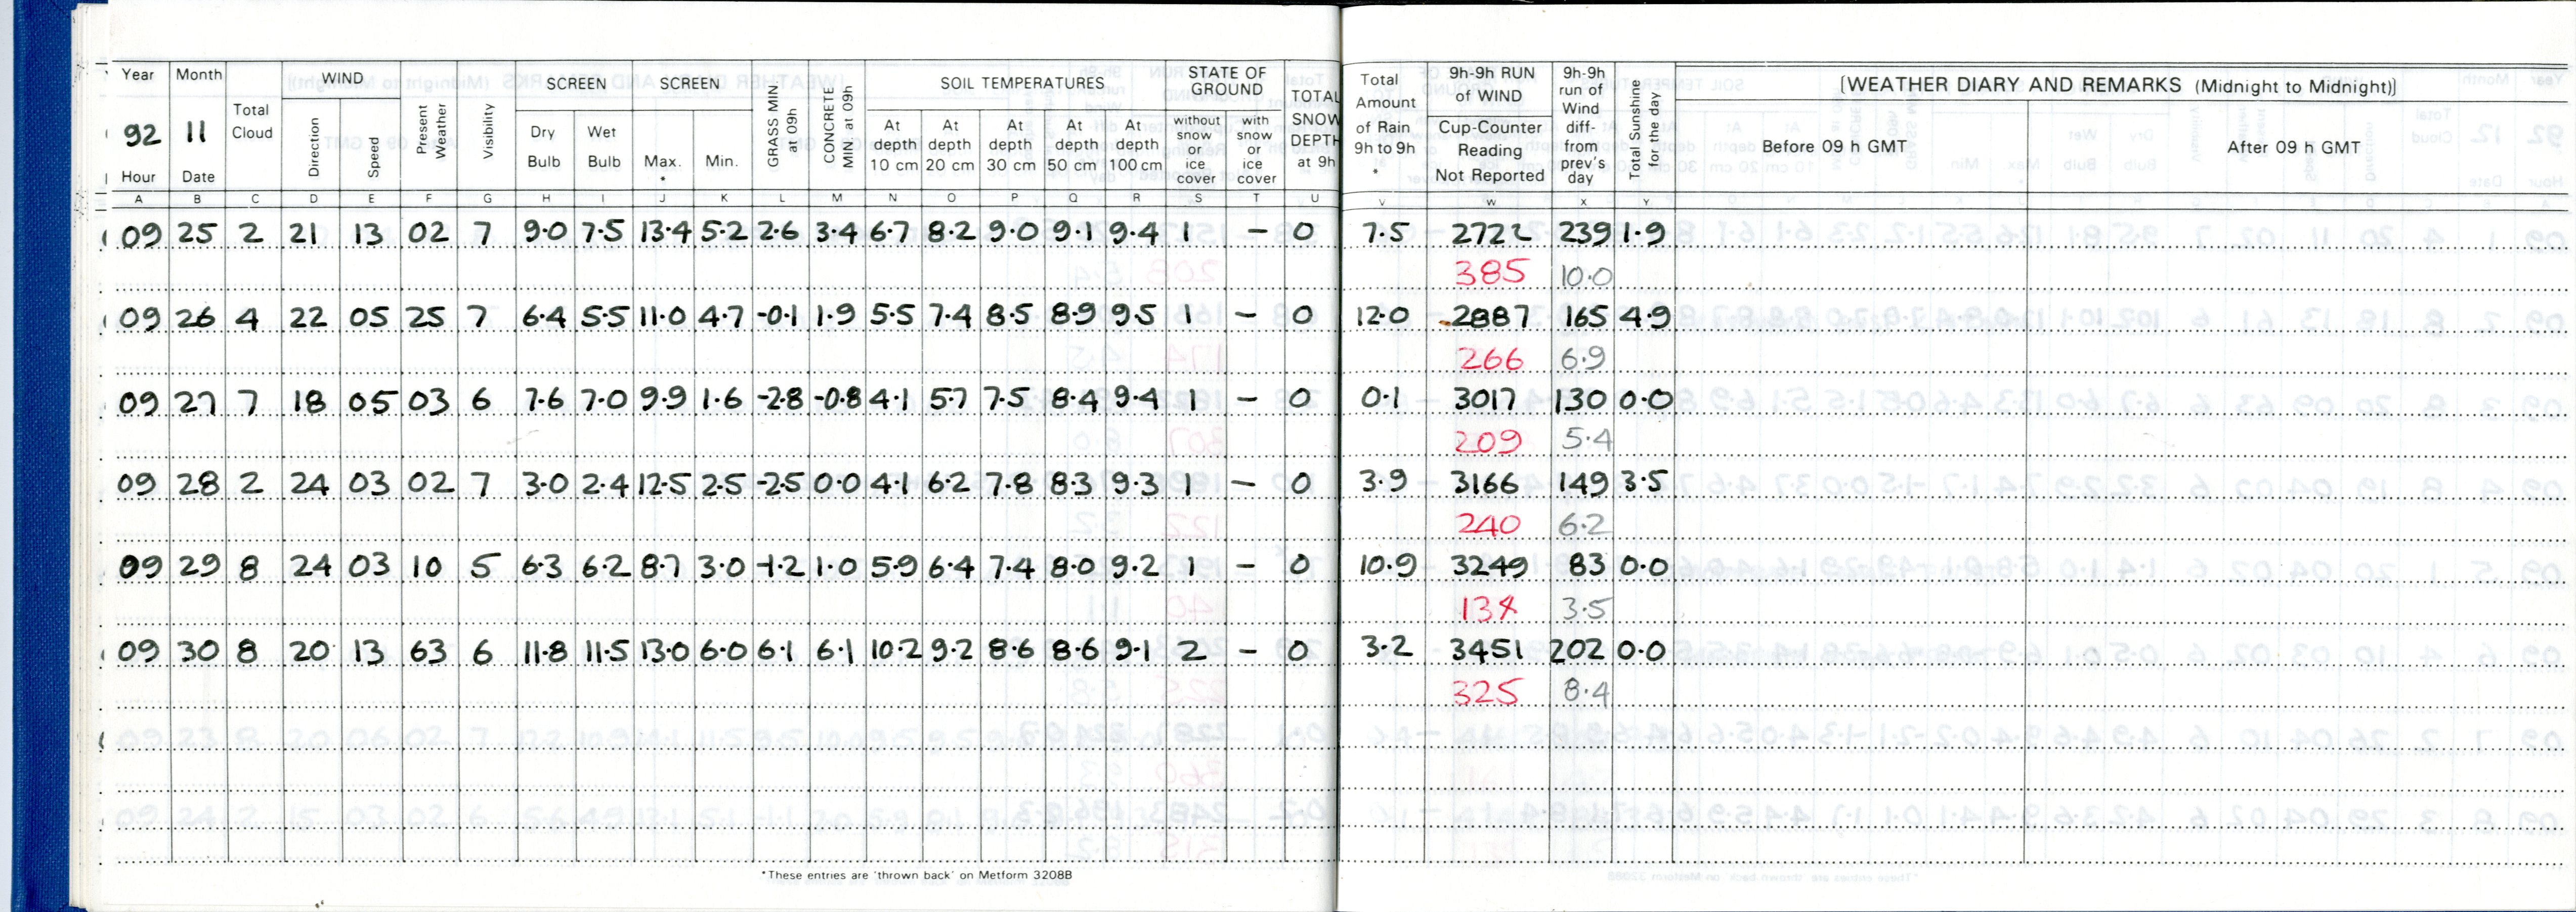 Year Month Total Cloud WIND Present Weather Visibility SCREEN SCREEN GRASS MIN at 09h CONCRETE MIN. at 09h SOIL TEMPERATURES STATE OF GROUND TOTAL SNOW DEPTH at 9h Total Amount of Rain 9h to 9h * 9h-9h RUN of WIND 9h-9h run of Wind diff- from prev's day Total Sunshine for the day [WEATHER DIARY AND REMARKS (Midnight to Midnight)]
92 11 Direction Speed Dry Bulb Wet Bulb Max. * Min. At depth 10 cm At depth 20 cm At depth 30 cm At depth 50 cm At depth 100 cm without snow or ice cover with snow or ice cover Cup-Counter Reading Not Reported Before 09 h GMT After 09 h GMT
Hour Date
A B C D E F G H I J K L M N O P Q R S T U V W X Y
09 25 2 21 13 02 7 9.0 7.5 13.4 5.2 2.6 3.4 6.7 8.2 9.0 9.1 9.4 1 – 0 7.5 2722 239 1.9
385 10.0
09 26 4 22 05 25 7 6.4 5.5 11.0 4.7 -0.1 1.9 5.5 7.4 8.5 8.9 9.5 1 – 0 12.0 2887 165 4.9
266 6.9
09 27 7 18 05 03 6 7.6 7.0 9.9 1.6 -2.8 -0.8 4.1 5.7 7.5 8.4 9.4 1 – 0 0.1 3017 130 0.0
209 5.4
09 28 2 24 03 02 7 3.0 2.4 12.5 2.5 -2.5 0.0 4.1 6.2 7.8 8.3 9.3 1 – 0 3.9 3166 149 3.5
240 6.2
09 29 8 24 03 10 5 6.3 6.2 8.7 3.0 -1.2 1.0 5.9 6.4 7.4 8.0 9.2 1 – 0 10.9 3249 83 0.0
3.5
09 30 8 20 13 63 6 11.8 11.5 13.0 6.0 6.1 6.1 10.2 9.2 8.6 8.6 9.1 2 – 0 3.2 3451 202 0.0
325 8.4
*These entries are 'thrown back' on Metform 3208B